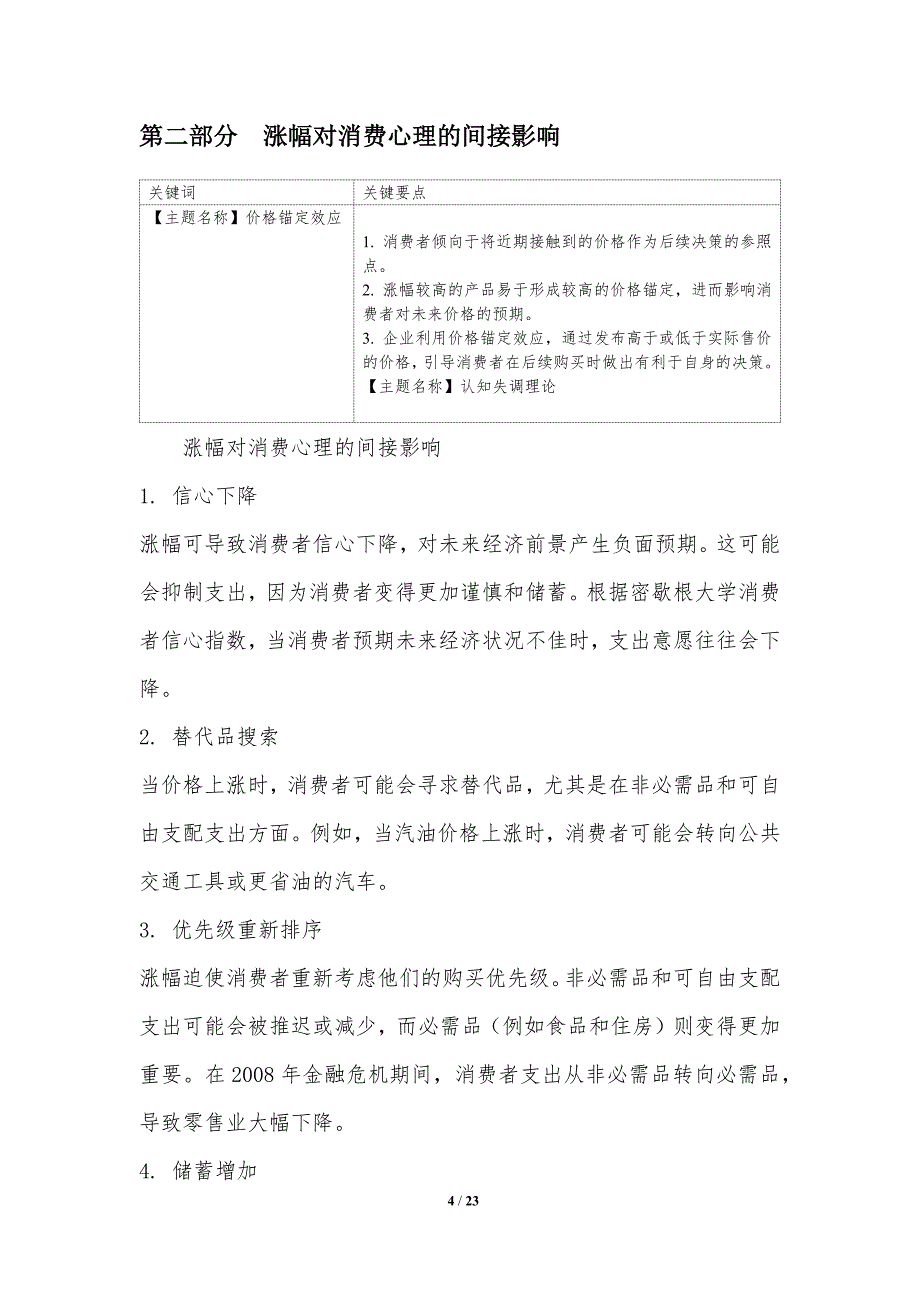 第二部分　涨幅对消费心理的间接影响
关键词
关键要点
【主题名称】价格锚定效应
1. 消费者倾向于将近期接触到的价格作为后续决策的参照
点。
2. 涨幅较高的产品易于形成较高的价格锚定，进而影响消
费者对未来价格的预期。
3. 企业利用价格锚定效应，通过发布高于或低于实际售价
的价格，引导消费者在后续购买时做出有利于自身的决策。
【主题名称】认知失调理论
涨幅对消费心理的间接影响
1. 信心下降
涨幅可导致消费者信心下降，对未来经济前景产生负面预期。这可能
会抑制支出，因为消费者变得更加谨慎和储蓄。根据密歇根大学消费
者信心指数，当消费者预期未来经济状况不佳时，支出意愿往往会下
降。
2. 替代品搜索
当价格上涨时，消费者可能会寻求替代品，尤其是在非必需品和可自
由支配支出方面。例如，当汽油价格上涨时，消费者可能会转向公共
交通工具或更省油的汽车。
3. 优先级重新排序
涨幅迫使消费者重新考虑他们的购买优先级。非必需品和可自由支配
支出可能会被推迟或减少，而必需品（例如食品和住房）则变得更加
重要。在 2008 年金融危机期间，消费者支出从非必需品转向必需品，
导致零售业大幅下降。
4. 储蓄增加
4 / 23